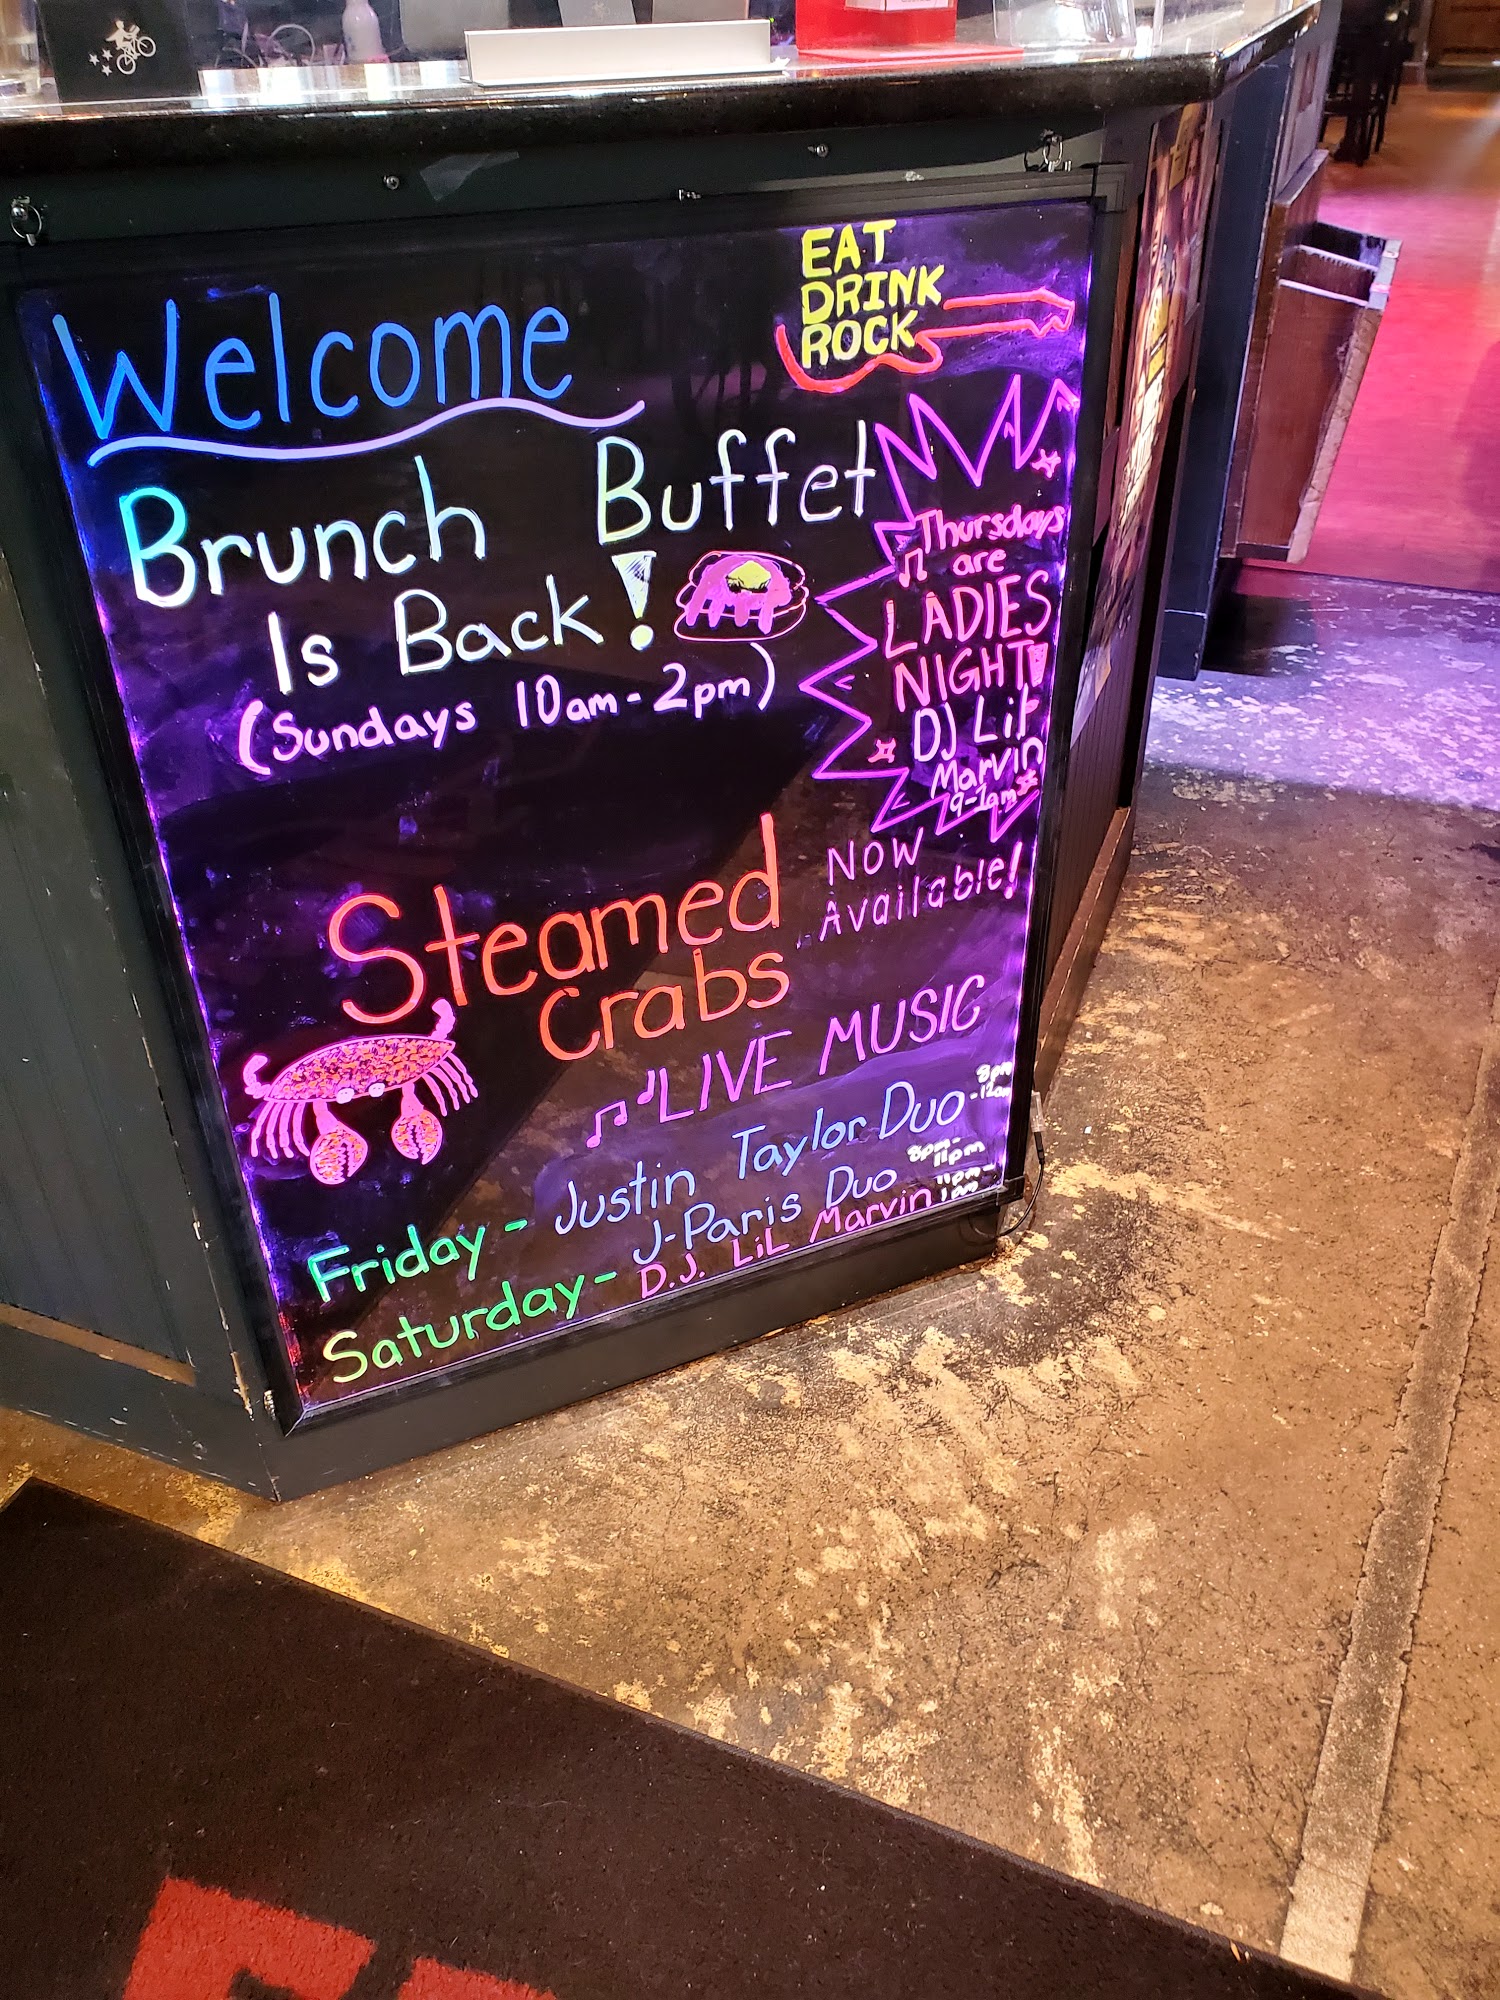 EAT
DRINK
ROCK
Welcome
Brunch Buffet
Is Back!
(Sundays 10am-2pm)
Thursdays
are
LADIES
NIGHT!
DJ Lil
Marvin
9-1am
Steamed
Crabs
Now
Available!
LIVE MUSIC
Friday - Justin Taylor Duo 8pm
-12am
Saturday - J-Paris Duo 8pm-
11pm
D.J. LiL Marvin 11pm-
1am